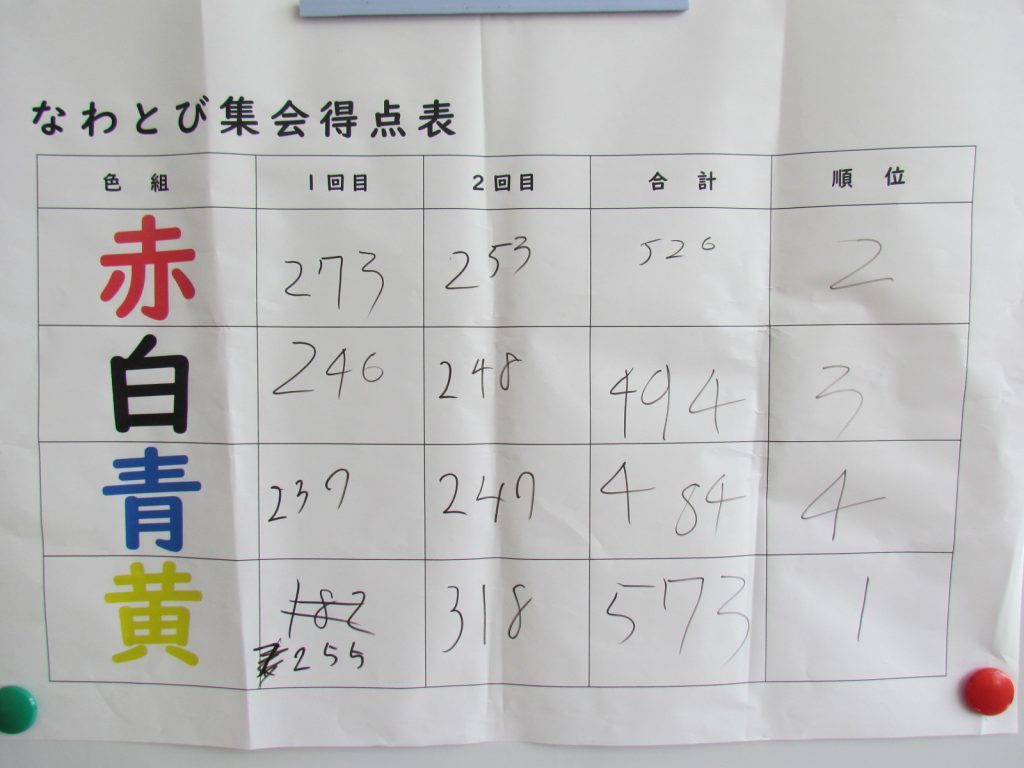 なわとび集会得点表
色組 1回目 2回目 合計 順位
赤 273 253 526 2
白 246 248 494 3
青 237 247 484 4
黄 182 318 573 1
255